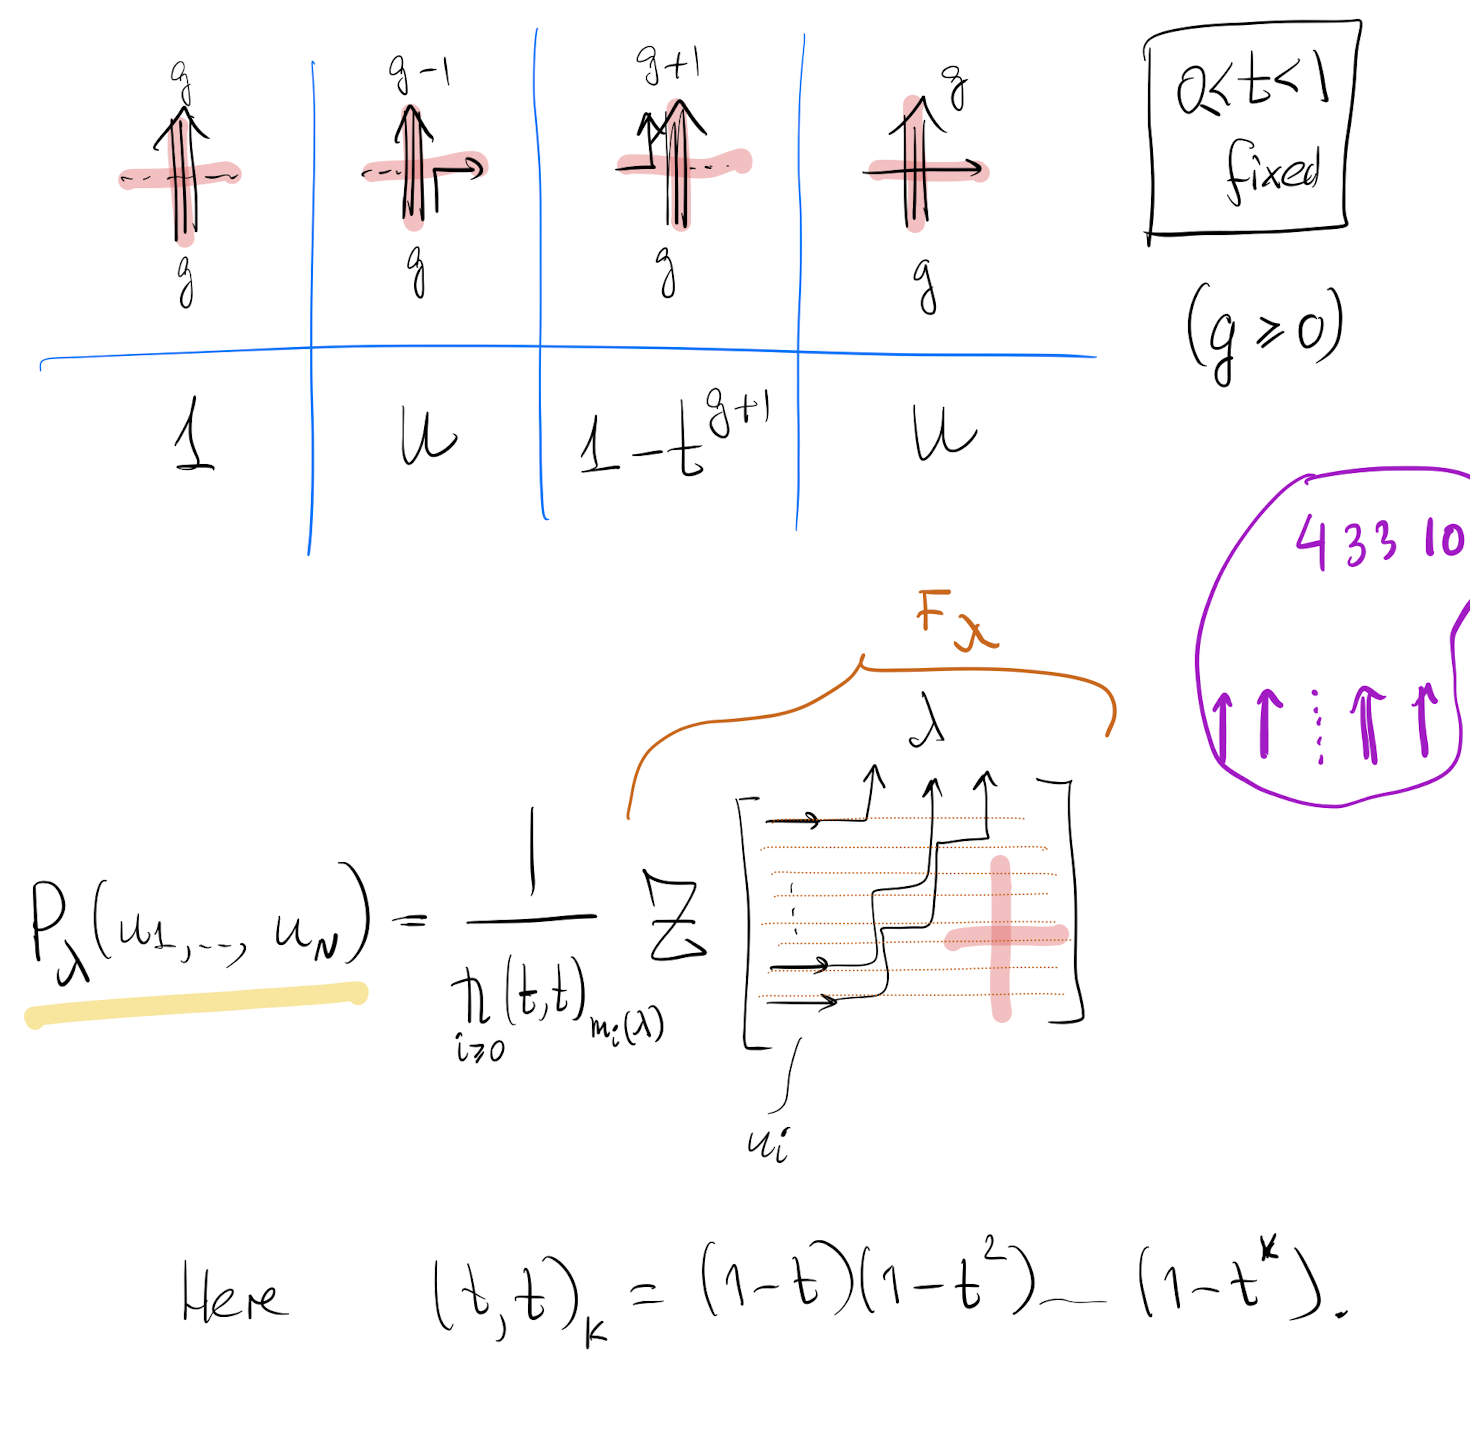 g g-1 g+1 g
g g g g
1 u 1-t^{g+1} u
0<t<1
fixed
(g ⩾ 0)
4 3 3 1 0
F_λ
λ
P_λ(u_1, .., u_N) = 1 / ∏_{i⩾0} (t,t)_{m_i(λ)} Z
u_i
Here (t,t)_k = (1-t)(1-t^2) — (1-t^k).